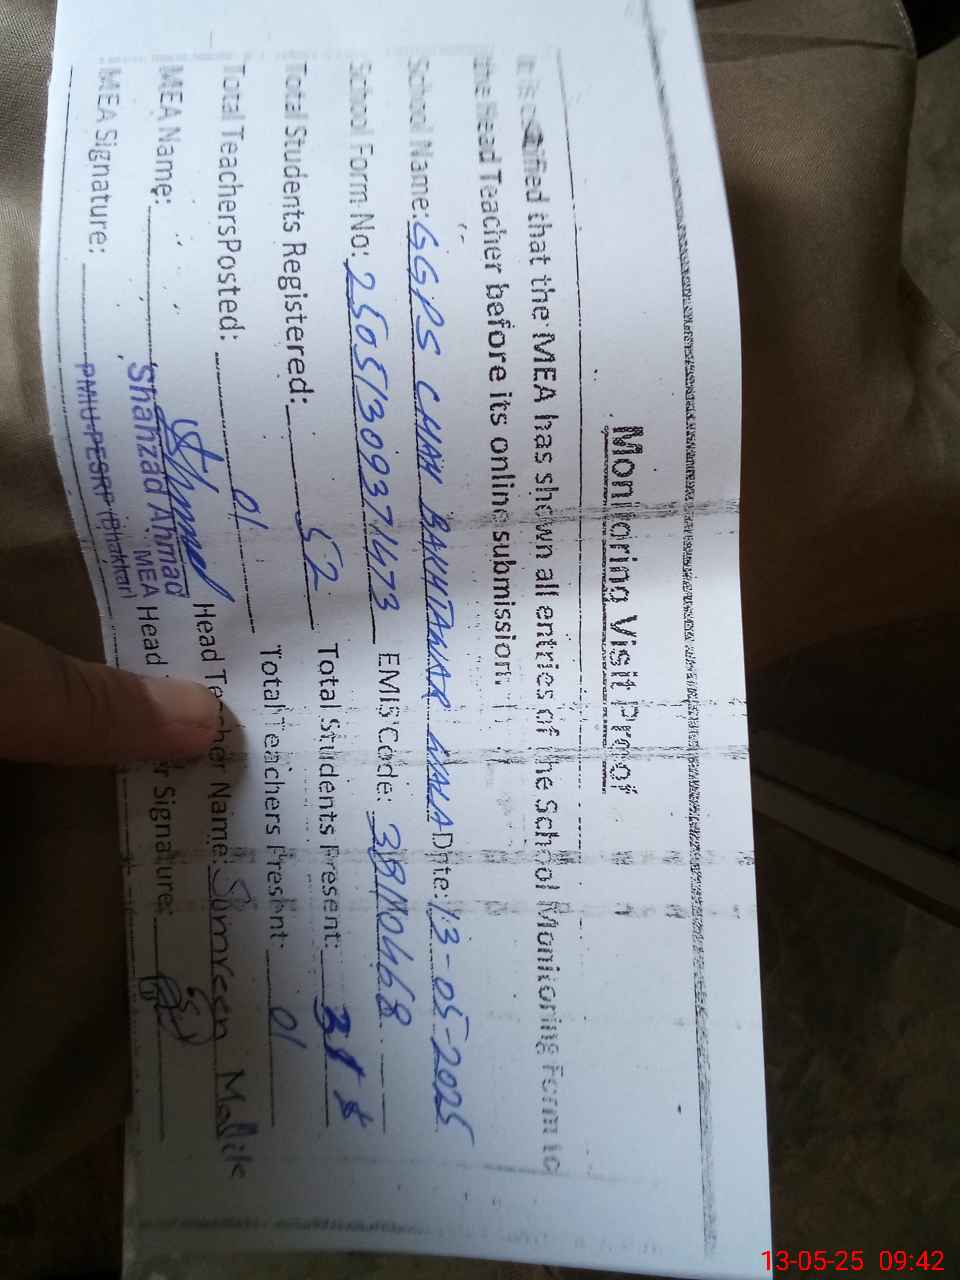 Monitoring Visit Proof
It is certified that the MEA has shown all entries of the School Monitoring Form to
the Head Teacher before its online submission.
School Name: GGPS CHAH BAKHTAWAR WALA Date: 13-05-2025
School Form No: 25051309371473 EMIS Code: 38110468
Total Students Registered: 52 Total Students Present:
Total TeachersPosted: 01 Total Teachers Present: 01
MEA Name: Head Teacher Name: Sumreen Malik
Shahzad Ahmad
MEA
MEA Signature: Head Signature:
PMIU-PESRP (Bhakkar)
13-05-25 09:42